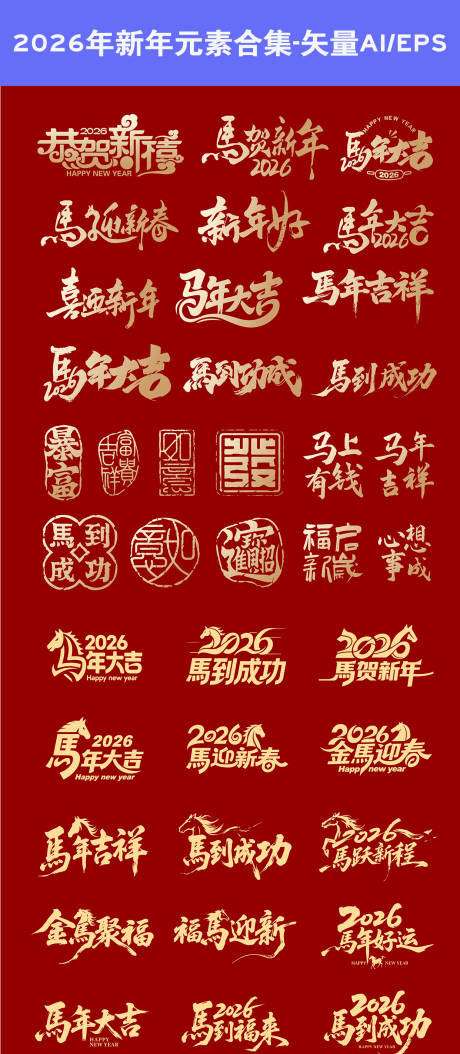 2026年新年元素合集-矢量AI/EPS
恭贺新禧
2026
HAPPY NEW YEAR
馬贺新年
2026
HAPPY NEW YEAR
馬年大吉
2026
馬年迎新春
新年好
馬年大吉
2026
喜迎新年
马年大吉
馬年吉祥
馬年大吉
2026
馬到功成
馬到成功
暴富
富貴吉祥
如意
發
马上有钱
马年吉祥
馬到成功
如意
招財進寶
福启新歲
心想事成
2026
马年大吉
Happy new year
2026
馬到成功
2026
馬贺新年
2026
馬年大吉
Happy new year
2026
馬迎新春
2026
金馬迎春
Happy new year
馬年吉祥
馬到成功
2026
馬跃新程
金馬聚福
福馬迎新
2026
馬年好运
HAPPY NEW YEAR
馬年大吉
HAPPY
NEW YEAR
2026
馬到福来
2026
馬到成功
HAPPY NEW YEAR